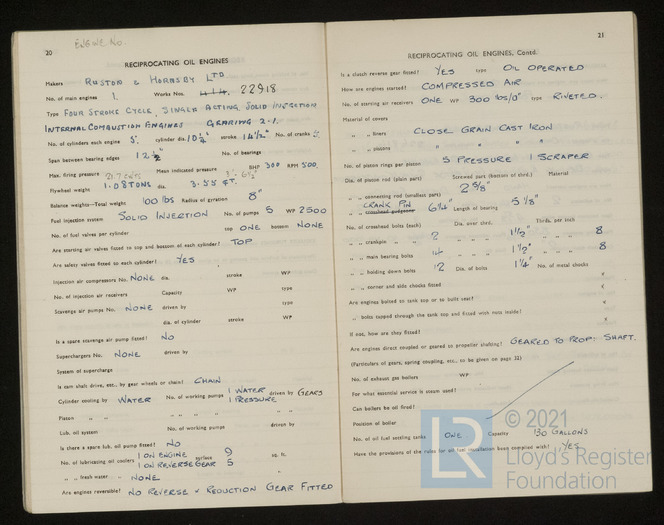 ENGINE No.
20
RECIPROCATING OIL ENGINES
Makers RUSTON & HORNSBY LTD
No. of main engines 1. Works Nos. 22918
Type FOUR STROKE CYCLE, SINGLE ACTING, SOLID INJECTION
INTERNAL COMBUSTION ENGINES GEARING 2-1.
No. of cylinders each engine 5. cylinder dia. 10¼" stroke 14½" No. of cranks 5.
Span between bearing edges 12½" No. of bearings
Max. firing pressure Mean indicated pressure BHP 300 RPM 500
Flywheel weight 1.08 TONS dia. 3.55 FT.
Balance weights—Total weight 100 lbs Radius of gyration 8"
Fuel injection system SOLID INJECTION No. of pumps 5 WP 2500
No. of fuel valves per cylinder top ONE bottom NONE
Are starting air valves fitted to top and bottom of each cylinder? TOP
Are safety valves fitted to each cylinder? YES
Injection air compressors No. NONE dia. stroke WP
No. of injection air receivers Capacity WP type
Scavenge air pumps No. NONE driven by type
dia. of cylinder stroke WP
Is a spare scavenge air pump fitted? NO
Superchargers No. NONE driven by
System of supercharge
Is cam shaft drive, etc., by gear wheels or chain? CHAIN
Cylinder cooling by WATER No. of working pumps 1 WATER 1 PRESSURE driven by GEARS
Piston „ „ „ „
Lub. oil system No. of working pumps driven by
Is there a spare lub. oil pump fitted? NO
No. of lubricating oil coolers 1 ON ENGINE surface 9 sq. ft.
1 ON REVERSE GEAR 5
„ „ fresh water „ NONE „
Are engines reversible? NO REVERSE & REDUCTION GEAR FITTED
21
RECIPROCATING OIL ENGINES, Contd.
Is a clutch reverse gear fitted? YES type OIL OPERATED
How are engines started? COMPRESSED AIR
No. of starting air receivers ONE WP 300 lbs/□" type RIVETED.
Material of covers
„ „ liners CLOSE GRAIN CAST IRON
„ „ pistons " " " "
No. of piston rings per piston 5 PRESSURE 1 SCRAPER
Dia. of piston rod (plain part) Screwed part (bottom of thrd.) Material
„ „ connecting rod (smallest part) 2⅝"
CRANK PIN
„ „ crosshead gudgeons 6¼" Length of bearing 5⅛"
No. of crosshead bolts (each) Dia. over thrd. Thrds. per inch
„ „ crankpin „ „ 2 „ „ „ 1½" „ „ „ 8
„ „ main bearing bolts 4 „ „ „ 1½" „ „ „ 8
„ „ holding down bolts 12 Dia. of bolts 1¼" No. of metal chocks
„ „ corner and side chocks fitted
Are engines bolted to tank top or to built seat?
„ „ bolts tapped through the tank top and fitted with nuts inside?
If not, how are they fitted?
Are engines direct coupled or geared to propeller shafting? GEARED TO PROP: SHAFT.
(Particulars of gears, spring coupling, etc., to be given on page 22)
No. of exhaust gas boilers WP
For what essential service is steam used?
Can boilers be oil fired?
Position of boiler
No. of oil fuel settling tanks ONE Capacity 130 GALLONS
Have the provisions of the rules for oil fuel installation been complied with? YES
LR © 2021
Lloyd's Register
Foundation